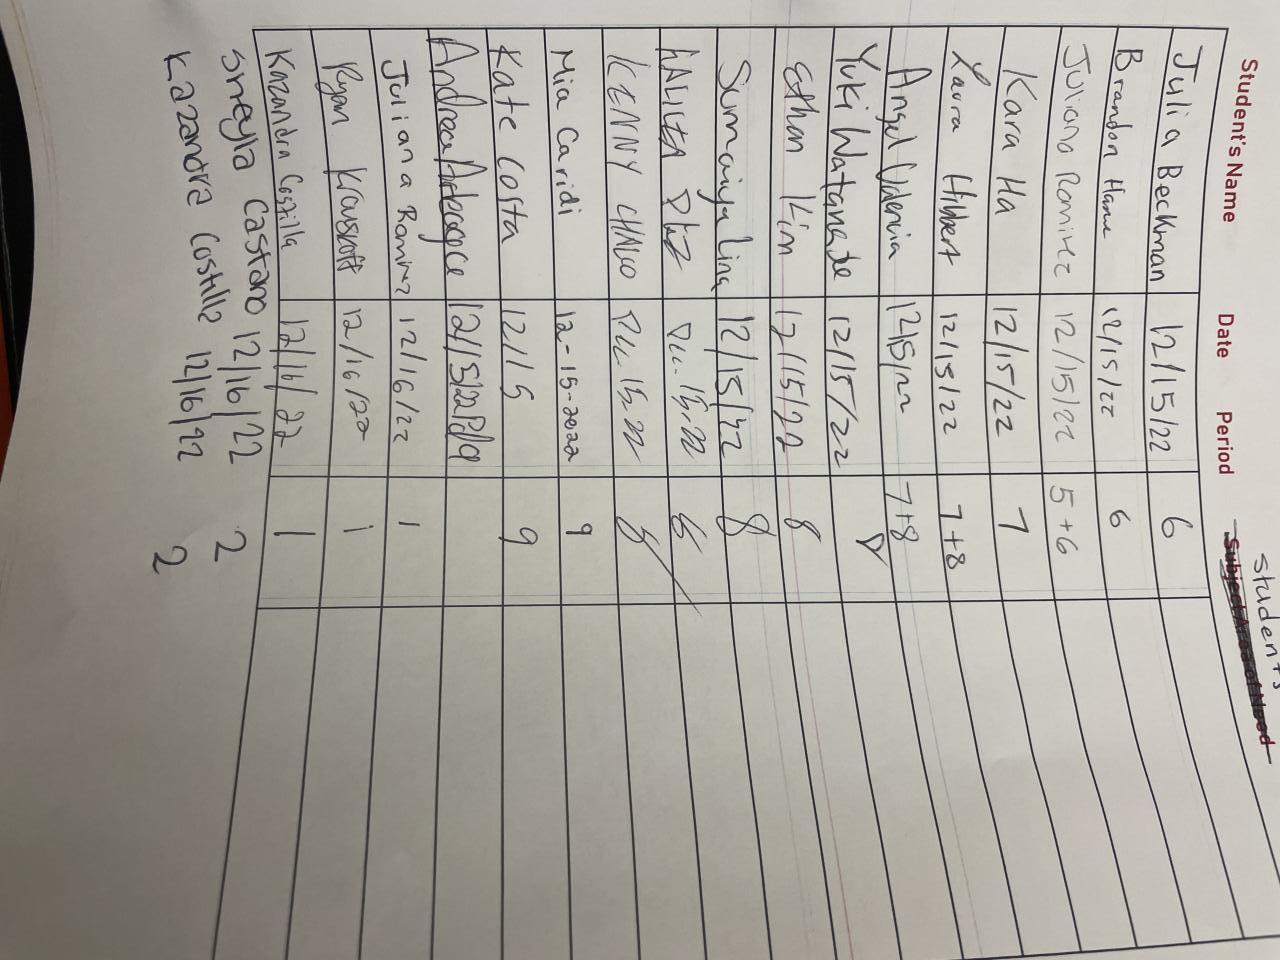 Student's Name Date Period Subject Area of Need
Students
Julia Beckman 12/15/22 6
Brandon 12/15/22 6
Juliana Ramirez 12/15/22 5+6
Kara Ha 12/15/22 7
Laura Hibbert 12/15/22 7+8
Angel 12/15/22 7+8
Yuki Watanabe 12/15/22
Ethan Kim 12/15/22 8
Sumaiya Lina 12/15/22 8
Dec. 15, 22 8
KENNY Dec. 15, 22 8
Mia Caridi 12-15-2022 9
Kate Costa 12/15 9
Andrea 12/15/22
Juliana Ramirez 12/16/22 1
Ryan 12/16/22 1
Kazandra 12/16/22 1
Sheyla Castano 12/16/22 2
Kazandra Costilla 12/16/22 2